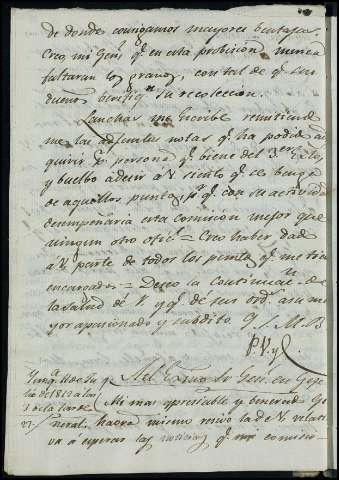 de donde consigamos mayores ventajas.
Creo, mi Genl qe en esta probision nunca
faltaran los granos, con tal de qe sus
dueños berifiqn su recoleccion.
Lanchas me escribe remitiend
me las adjuntas notas qe ha podido ad
quirir pr persona qe biene del 3er Exto,
y buelbo a decir a V. siento qe él benga
de aquellos puntos, pr qe con su actividad
desempeñaria esta comision mejor que
ningun otro ofice = Creo haber dado
a V. parte de todos los puntos qe me tiene
encargados = Deseo la continuacn de
la salud de V. y qe dé sus ords a su ma
yor apasionado y subdito. Q. S. M. B.
P. V. y
de 1813 a las
3 de la tarde
Al Exmo Sr Genl en Gefe
Mi mas apreciable y benerado Ge
neral: haora mismo recivo la de V. relati
va á esperar las noticias qe me comuni-